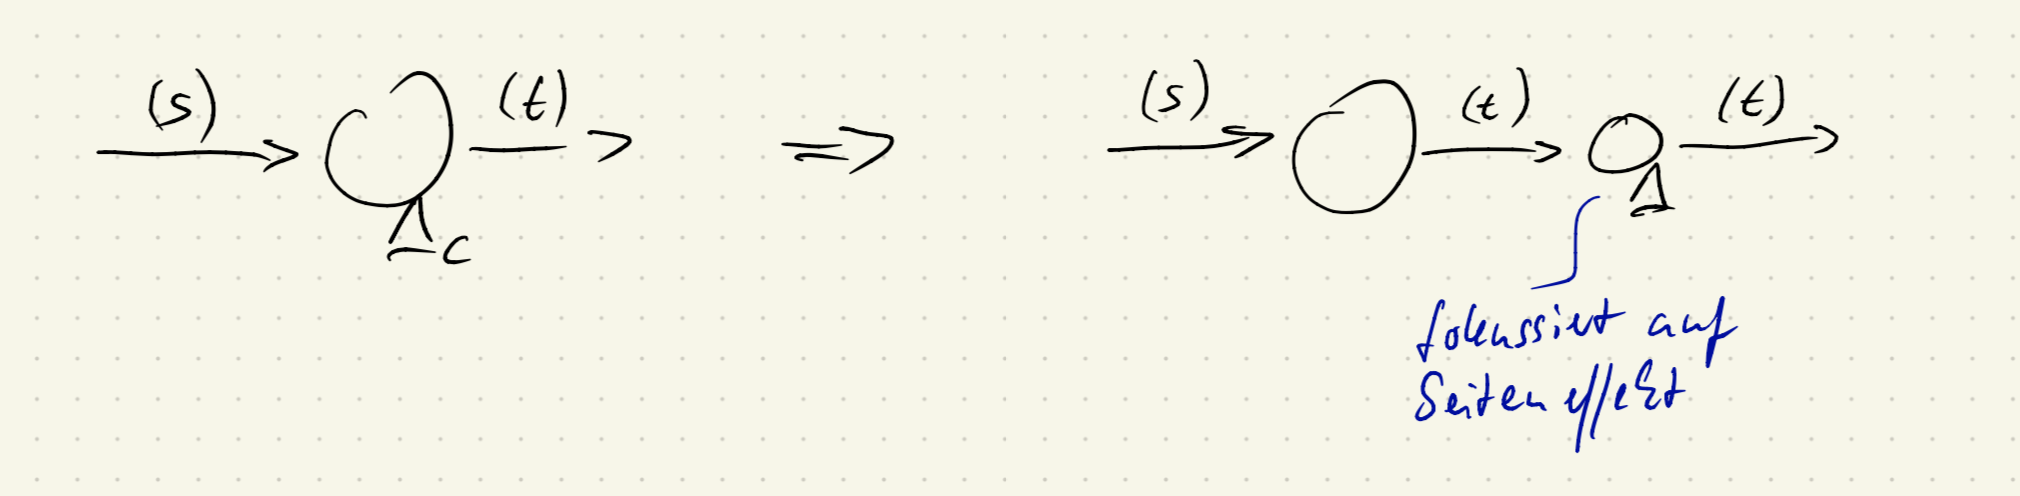 (s) (t) => (s) (t) (t)
c
fokussiert auf
Seiteneffekt